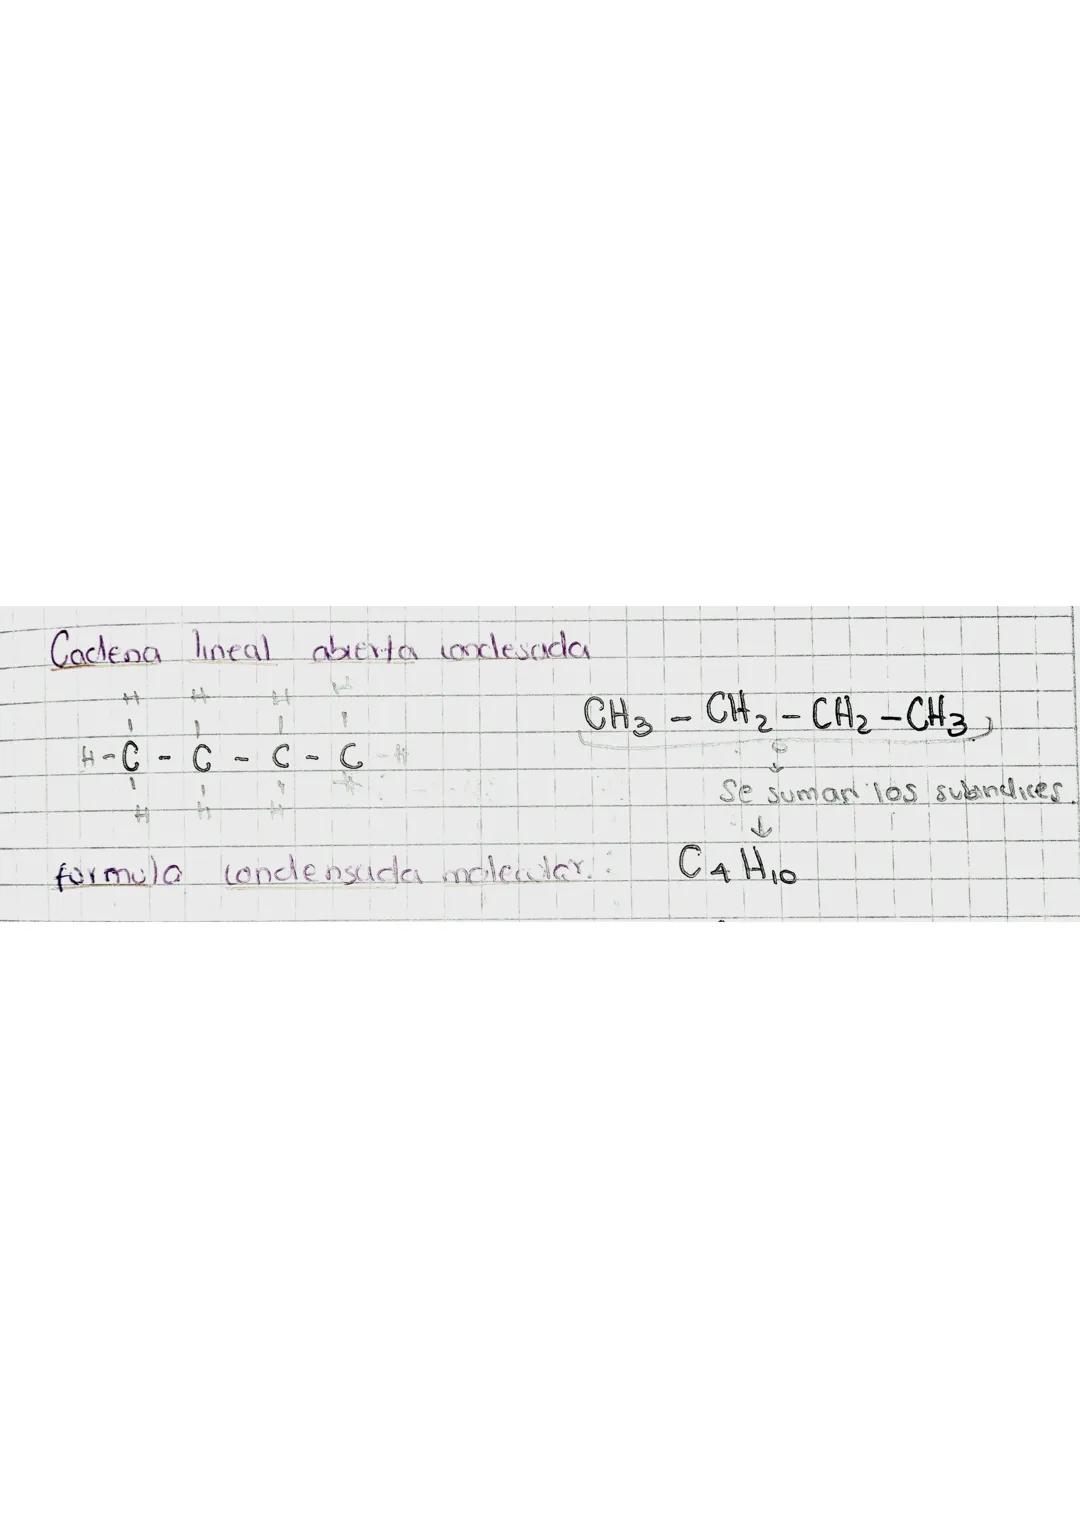 Cadena lineal abierta condesada
H H H H
CH3 - CH2 - CH2 - CH3
H - C - C - C - C - H
Se suman los subindices.
H H H H
formula condensada molecular: C4H10